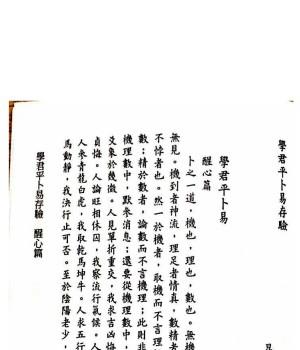 學君平卜易存驗
學君平卜易
醒心篇
卜之一道，機也，理也，數也。無機
無見。機到者神流，理足者情真，數精者
不悖者也。然一於機者，取機而不言理
數；精於數者，論數而不言機理；此則非
機理數中，默參消息；還要從機理數中，
爻象於幾微。人見單折重交，我求吉凶悔
貞悔。人論旺相休囚，我察流行氣候。人
人來青龍白虎，我取乾馬坤牛。人求五行
馬動靜，我決行止可否。至於陰陽老少，
學君平卜易存驗 醒心篇